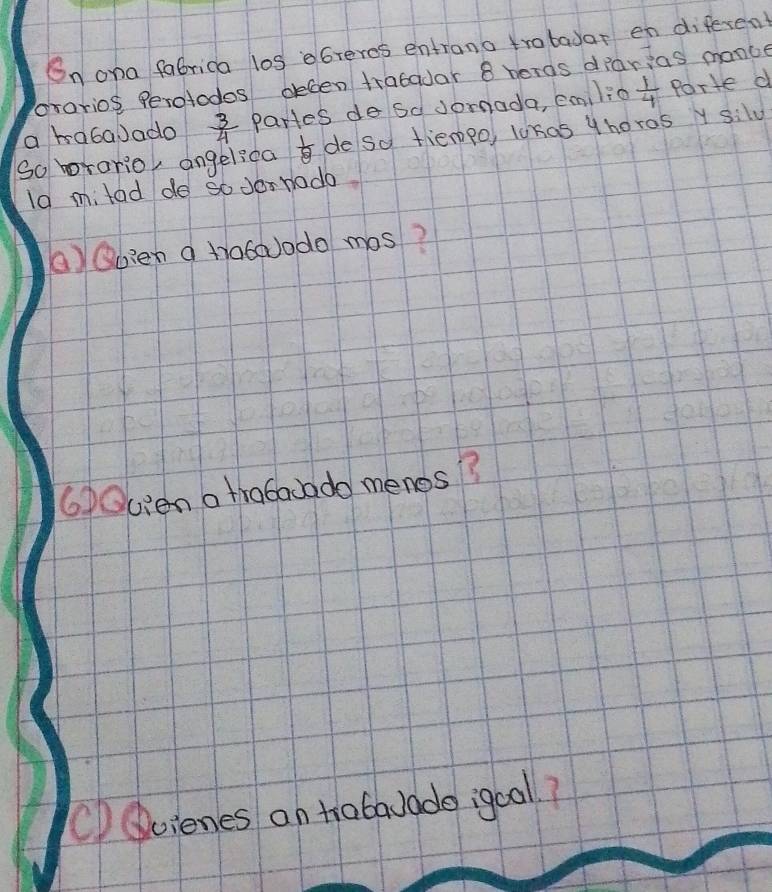 En ona fabrica los obreros entrana trabajar en diferent
orarios perotodos deben trabajar 8 horas diarias manue
a trabajado 3/4 partes de so jornada, emilio 1/4 parte d
so horario, angelica de so tiempo, lukas 4 horas y silv
la mitad de so jornada
a) Quien a trabajodo mas?
b) Quien a trabajado menos?
c) Quienes an trabajado igual?